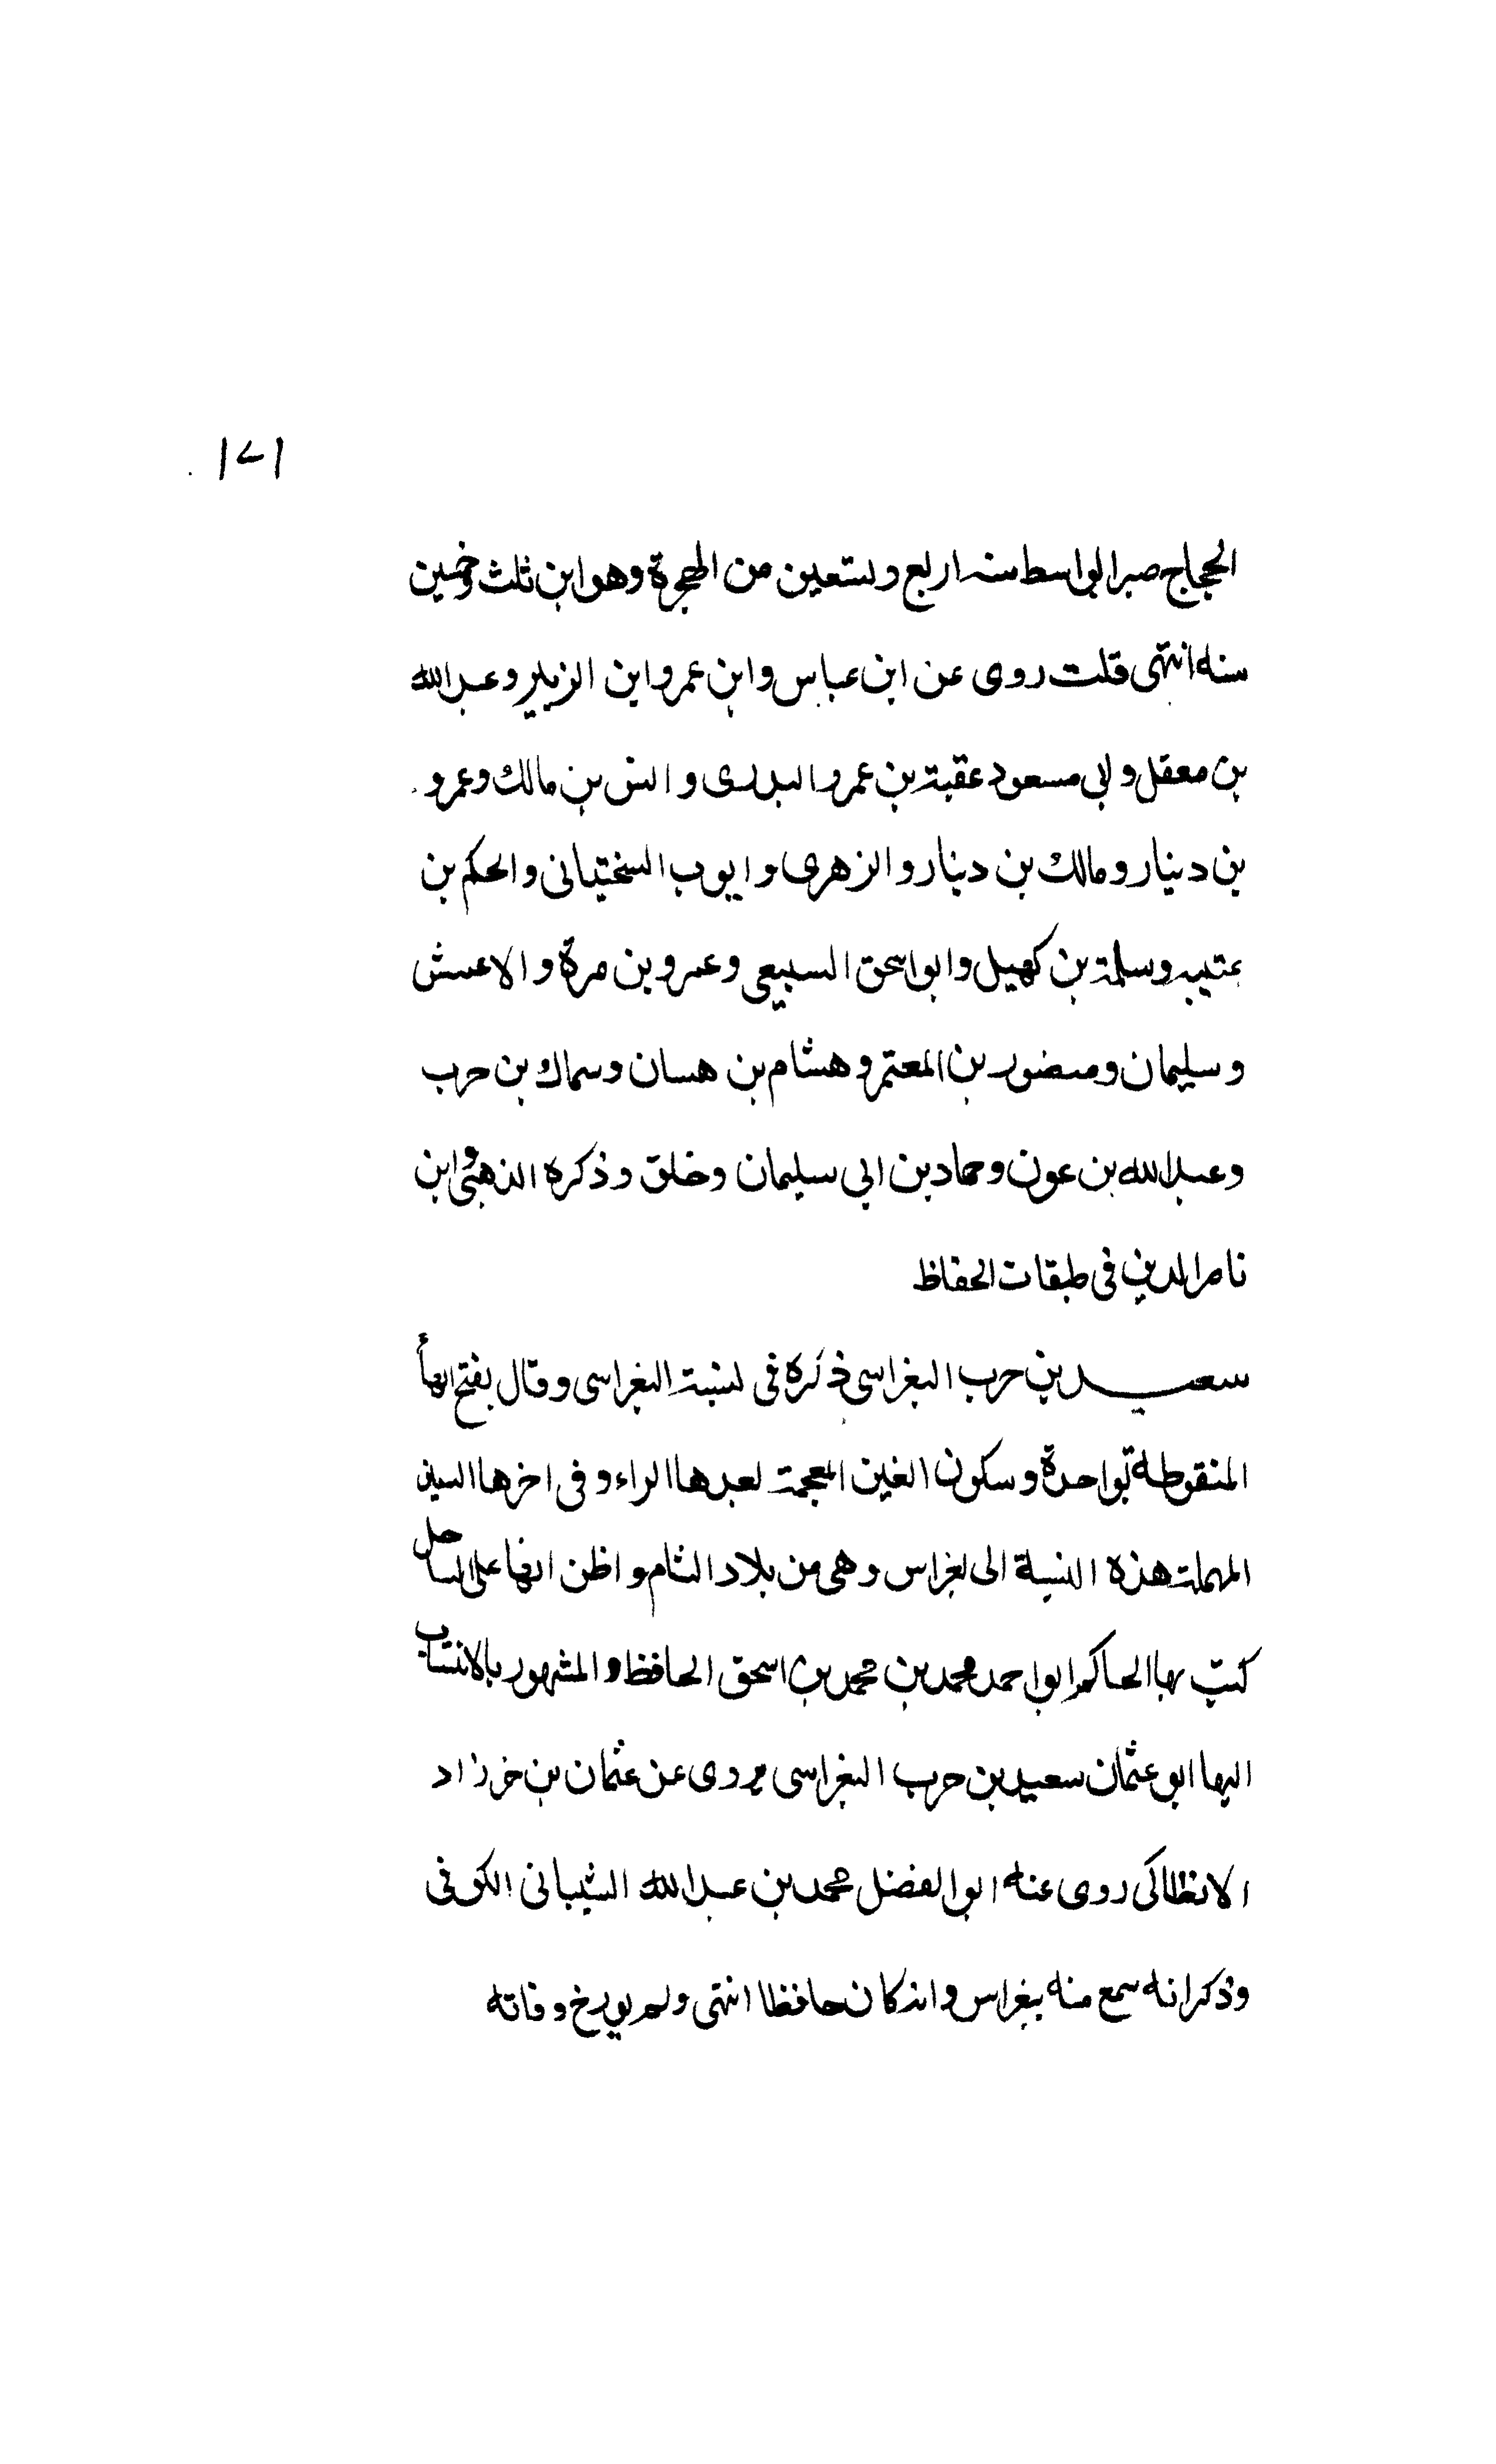 ١٧١
الحجاج صبرا لواسط سنه اربع وستعين من الهجرة وهو ابن ثلث وخمسين
سنه انتهى قلت روى عن ابن عباس وابن عمر وابن الزبير وعبد الله
بن معقل وابي مسعود عقبة بن عمرو البدرى وانس بن مالك وعمرو
بن دينار ومالك بن دينار والزهرى وايوب السختيانى والحكم بن
عتيبه وسلمة بن كهيل وابو اسحق السبيعى وعمرو بن مرة والاعمش
وسليمان ومنصور بن المعتمر وهشام بن هسان وسماك بن حرب
وعبد الله بن عون وحماد بن ابي سليمان وخلق وذكره الذهبى وابن
ناصر الدين فى طبقات الحفاظ
سعيد بن حرب البغراسى ذكره فى نسبة البغراسى وقال بفتح الهأ
المنقوطه بواحدة وسكون الغين المعجمة بعدها الراء وفى اخرها السين
المهملة هذه النسبة الى بغراس وهى من بلاد الشام واظن انها على الساحل
كتب بها الحاكم ابو احمد محمد بن محمد بن اسحق الحافظ والمشهور بالانتساب
اليها ابو عثمان سعيد بن حرب البغراسى يروى عن عثمان بن خرزاد
الانطاكى روى عنه ابو الفضل محمد بن عبد الله الشيبانى الكوفى
وذكر انه سمع منه ببغراس وانه كان حافظا انتهى ولم يورخ وفاته